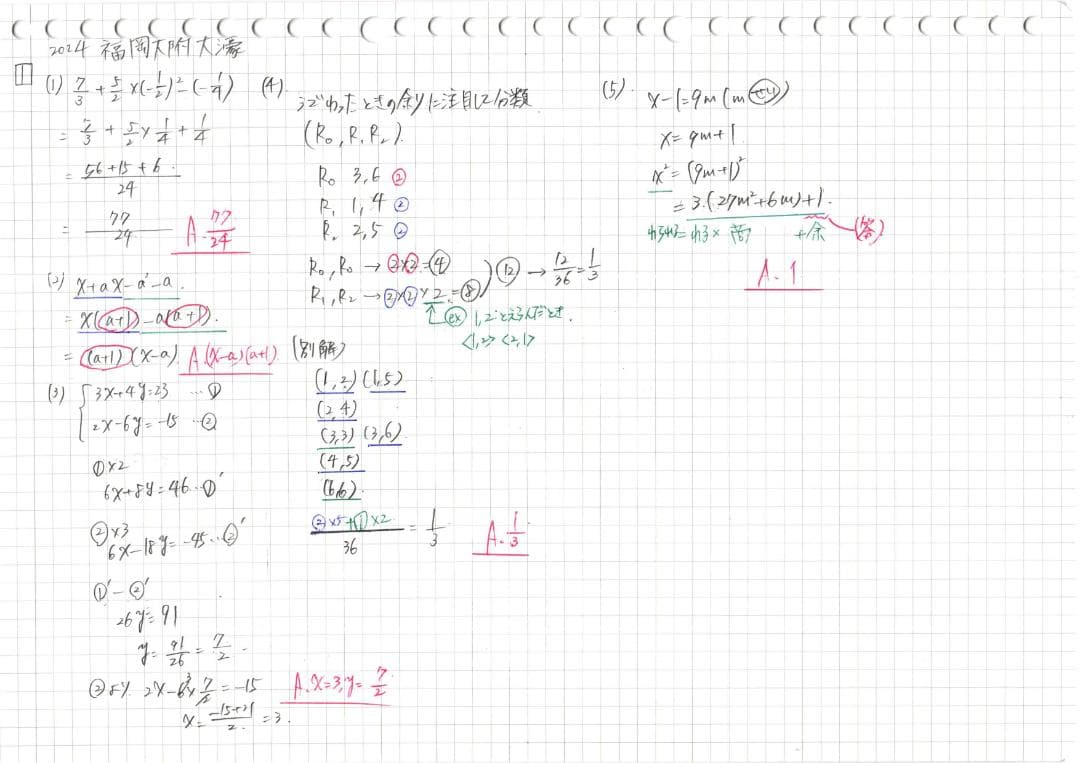 2024 福岡大附大濠
1
(1) 7/3 + 5/2 × (-1/2)² - (-1/4)
= 7/3 + 5/2 × 1/4 + 1/4
= 56+15+6 / 24
= 77/24 A. 77/24
(2) x+ax-a²-a
= x(a+1)-a(a+1)
= (a+1)(x-a) A.(x-a)(a+1)
(3) { 3x+4y=23 … ①
2x-6y=-15 … ②
①×2
6x+8y=46 … ①'
②×3
6x-18y=-45 … ②'
①'-②'
26y=91
y= 91/26 = 7/2
②より 2x-6×7/2=-15
x= -15+21 / 2 =3
A. x=3, y= 7/2
(4) 3でわったときの余りに注目して分類
(R₀, R₁ R₂)
R₀ 3,6 ②
R₁ 1,4 ②
R₂ 2,5 ②
R₀, R₀ → ②×②=④
R₁, R₂ → ②×②×2=⑧
⑫ → 12/36 = 1/3
ex 1,2をえらんだとき、
<1,2> <2,1>
(別解)
(1,2) (1,5)
(2,4)
(3,3) (3,6)
(4,5)
(6,6)
②×5+①×2 / 36 = 1/3 A. 1/3
(5) x-1=9m (m
x=9m+1
x²=(9m+1)²
=3(27m²+6m)+1
わる× 商 +余 (答)
A. 1